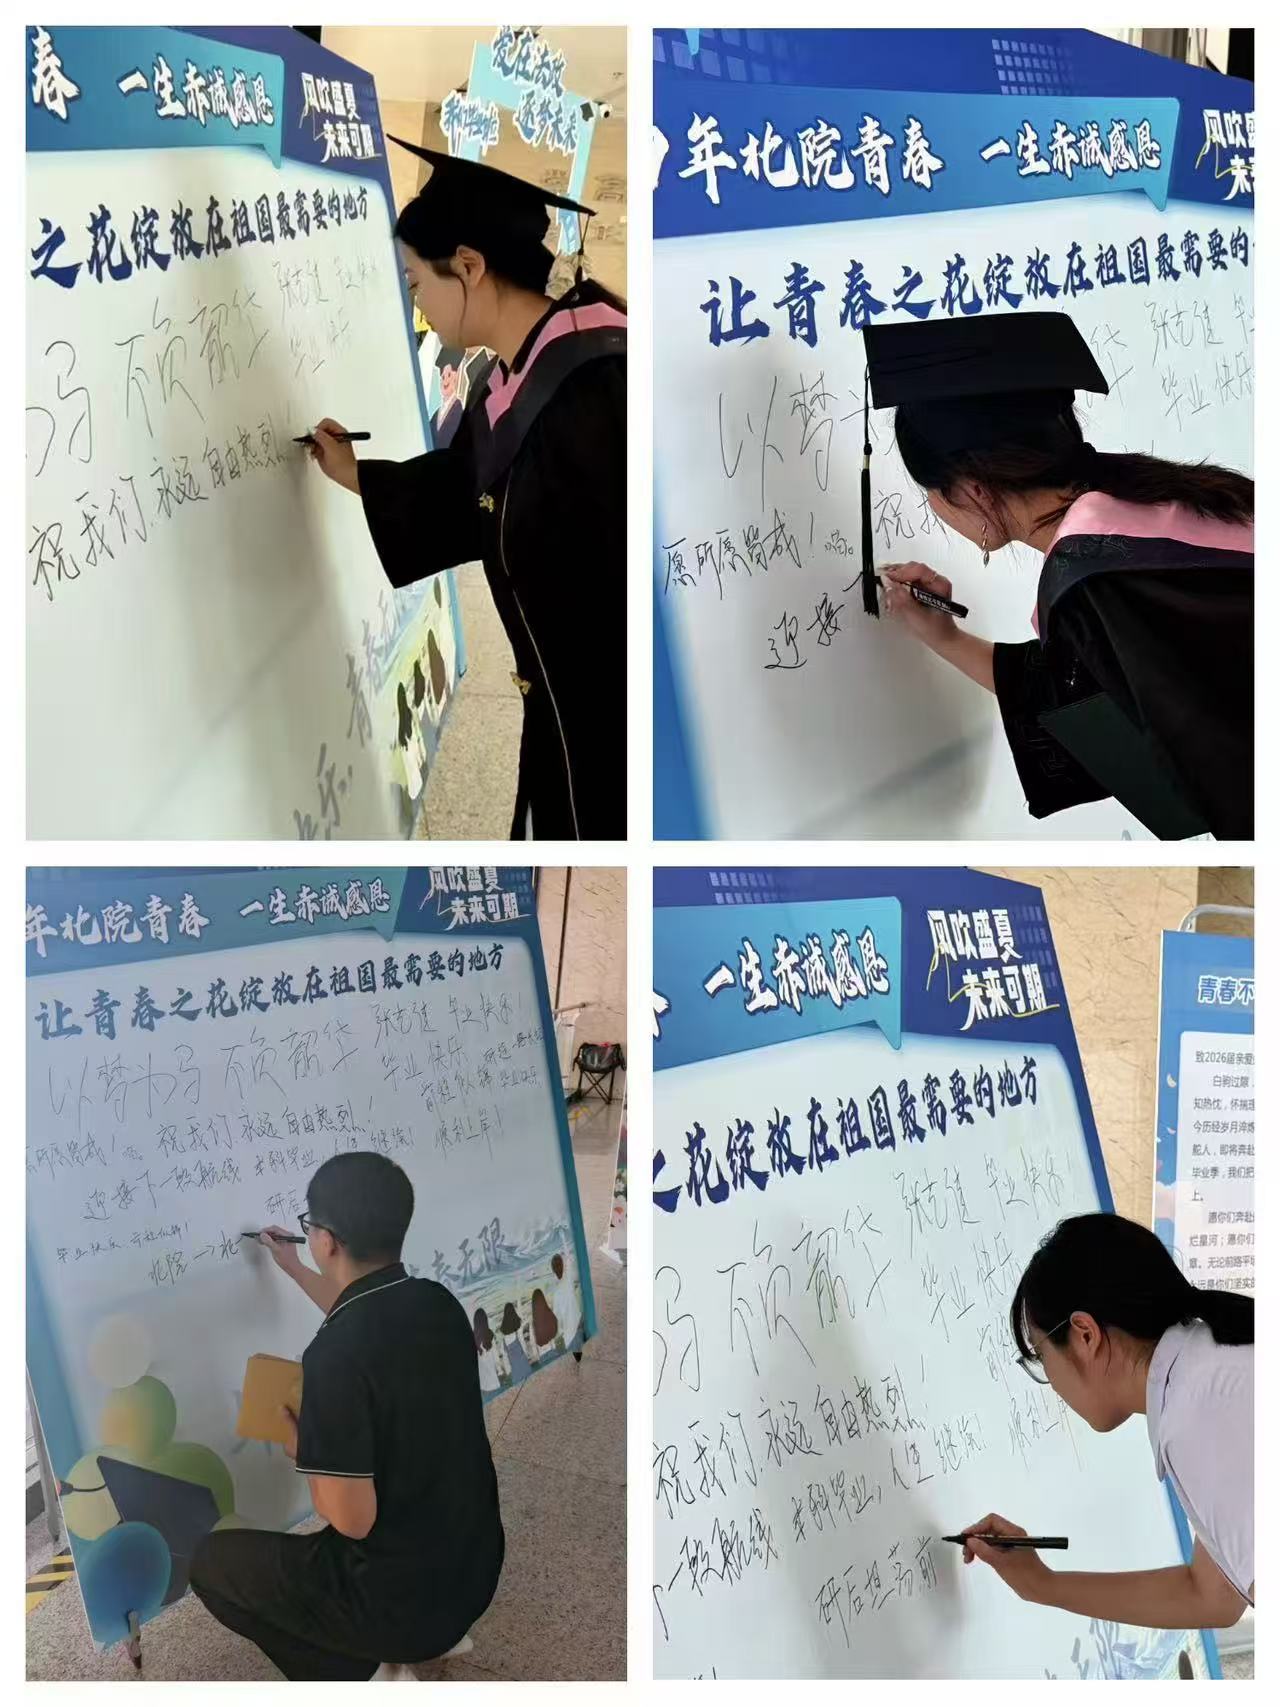 春 一生赤诚感恩
风吹盛夏
未来可期
爱在法政
逐梦未来
之花绽放在祖国最需要的地方
马 不负韶华 张志健 毕业快
毕业快乐
祝我们永远自由热烈!
年北院青春 一生赤诚感恩
风吹盛夏
未来
让青春之花绽放在祖国最需要的
以梦 华 张志健 毕
毕业快乐
愿所愿皆成! 祝我
迎接
年北院青春 一生赤诚感恩
风吹盛夏
未来可期
让青春之花绽放在祖国最需要的地方
以梦为马 不负韶华 张志健 毕业快乐!
毕业快乐
前程似锦 毕业快乐
所愿皆成! 祝我们永远自由热烈! 顺利上岸!
迎接下一段航线 本科毕业, 人生继续!
研后
毕业快乐 前程似锦!
北院→北
青春无限
一生赤诚感恩
风吹盛夏
未来可期
之花绽放在祖国最需要的地方
马 不负韶华 张志健 毕业快乐!
毕业快乐
祝我们永远自由热烈! 顺利上岸
下一段航线 本科毕业, 人生继续!
研后坦荡前
青春不
致2026届亲爱
白驹过隙,
知热忱,怀揣理
今历经岁月淬炼
舵人,即将奔赴
毕业季,我们把
上。
愿你们奔赴
烂星河;愿你们
章。无论前路平坦
永远是你们坚实的